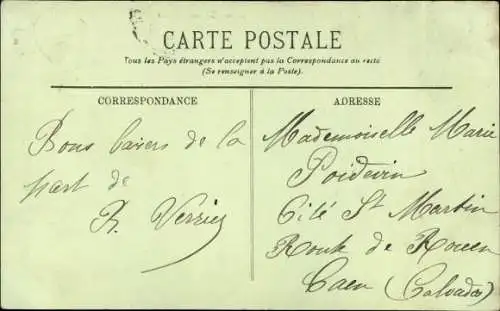 CARTE POSTALE
Tous les Pays étrangers n'acceptent pas la Correspondance au recto
(Se renseigner à la Poste).
CORRESPONDANCE
Bons baisers de la
part de
ADRESSE
Mademoiselle Marie
Poidevin
Cité St Martin
Route de Rouen
Caen (Calvados)